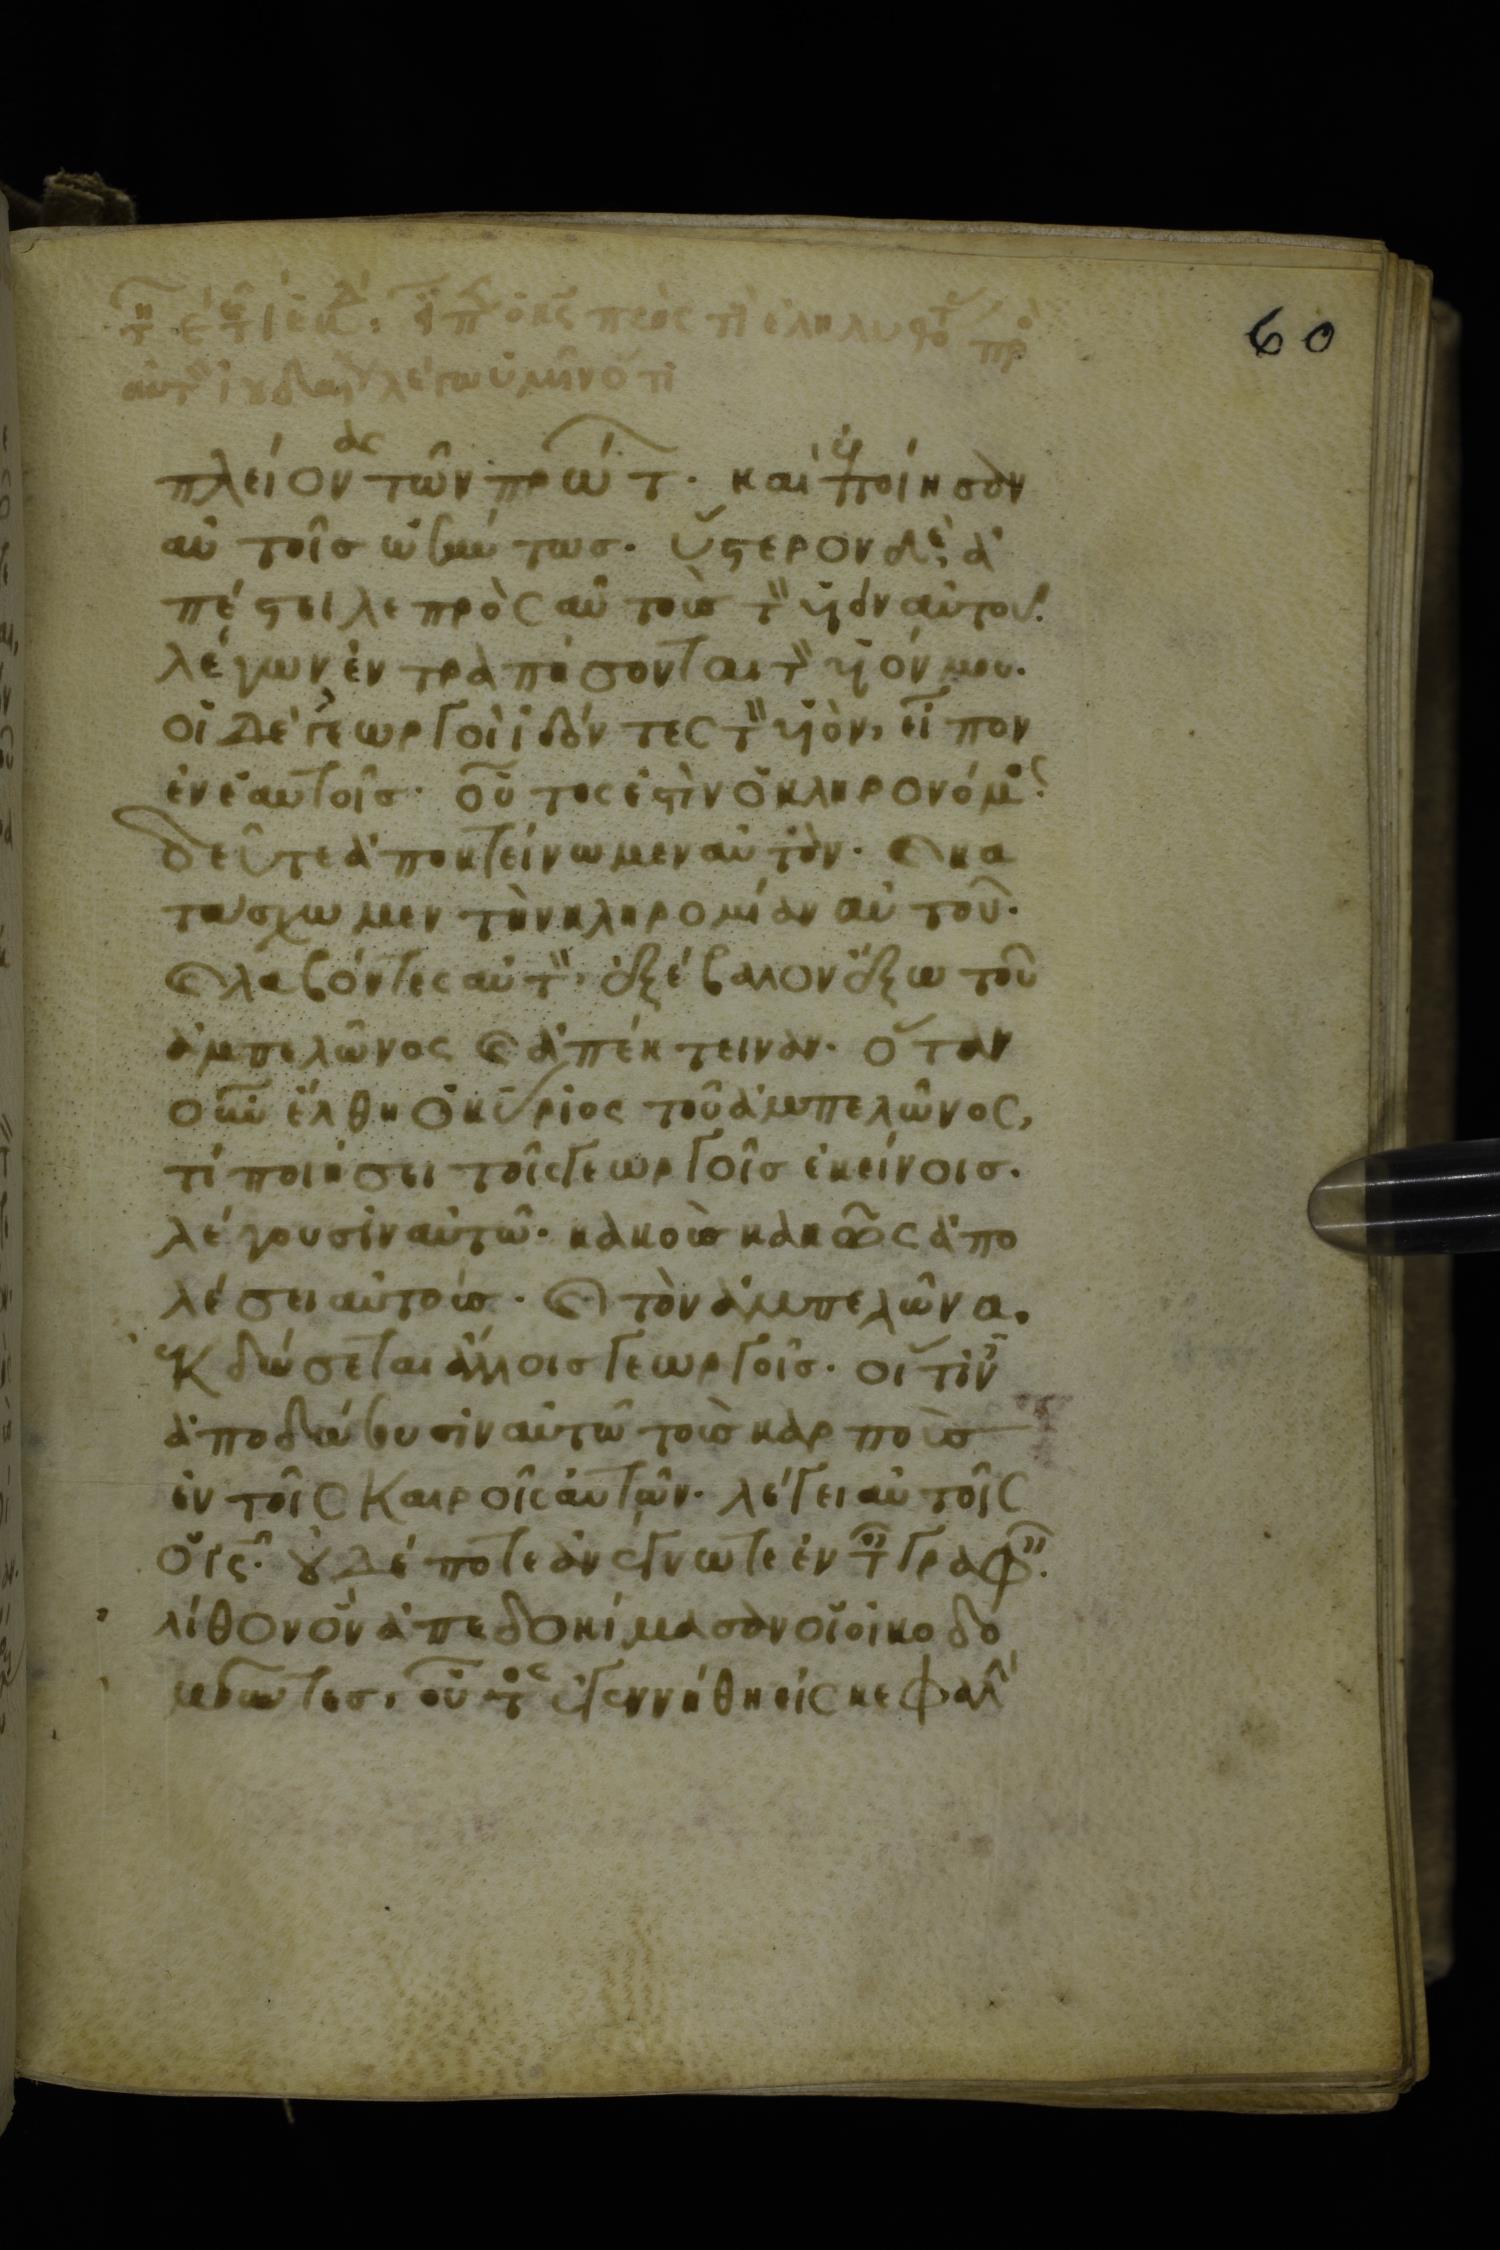 60
πλείονας τῶν πρώτ. καὶ ἐποίησαν
αὐτοῖς ὡσαύτως. ὕστερον δὲ ἀ
πέστειλε πρὸς αὐτοὺς τὸν υἱὸν αὐτοῦ.
λέγων ἐντραπήσονται τὸν υἱόν μου.
οἱ δὲ γεωργοὶ ἰδόντες τὸν υἱὸν, εἶπον
ἐν ἑαυτοῖς. οὗτος ἐστὶν ὁ κληρονόμος.
δεῦτε ἀποκτείνωμεν αὐτὸν. καὶ κα
τάσχωμεν τὴν κληρομίαν αὐτοῦ.
καὶ λαβόντες αὐτὸν, ἐξέβαλον ἔξω τοῦ
ἀμπελῶνος καὶ ἀπέκτειναν. ὅταν
οὖν ἔλθη ὁ κύριος τοῦ ἀμπελῶνος,
τί ποιήσει τοῖς γεωργοῖς ἐκείνοις.
λέγουσιν αὐτῶ. κακοὺς κακῶς ἀπο
λέσει αὐτούς. καὶ τὸν ἀμπελῶνα.
ἐκδώσεται ἄλλοις γεωργοῖς. οἵτινες
ἀποδώσουσιν αὐτῶ τοὺς καρποὺς
ἐν τοῖς καιροῖς αὐτῶν. λέγει αὐτοῖς
ὁ ις. οὐδέποτε ἀνέγνωτε ἐν ταῖς γραφαῖς.
λίθον ὃν ἀπεδοκίμασαν οἱ οἰκοδο
μοῦντες, οὗτος ἐγεννήθη εἰς κεφαλὴ